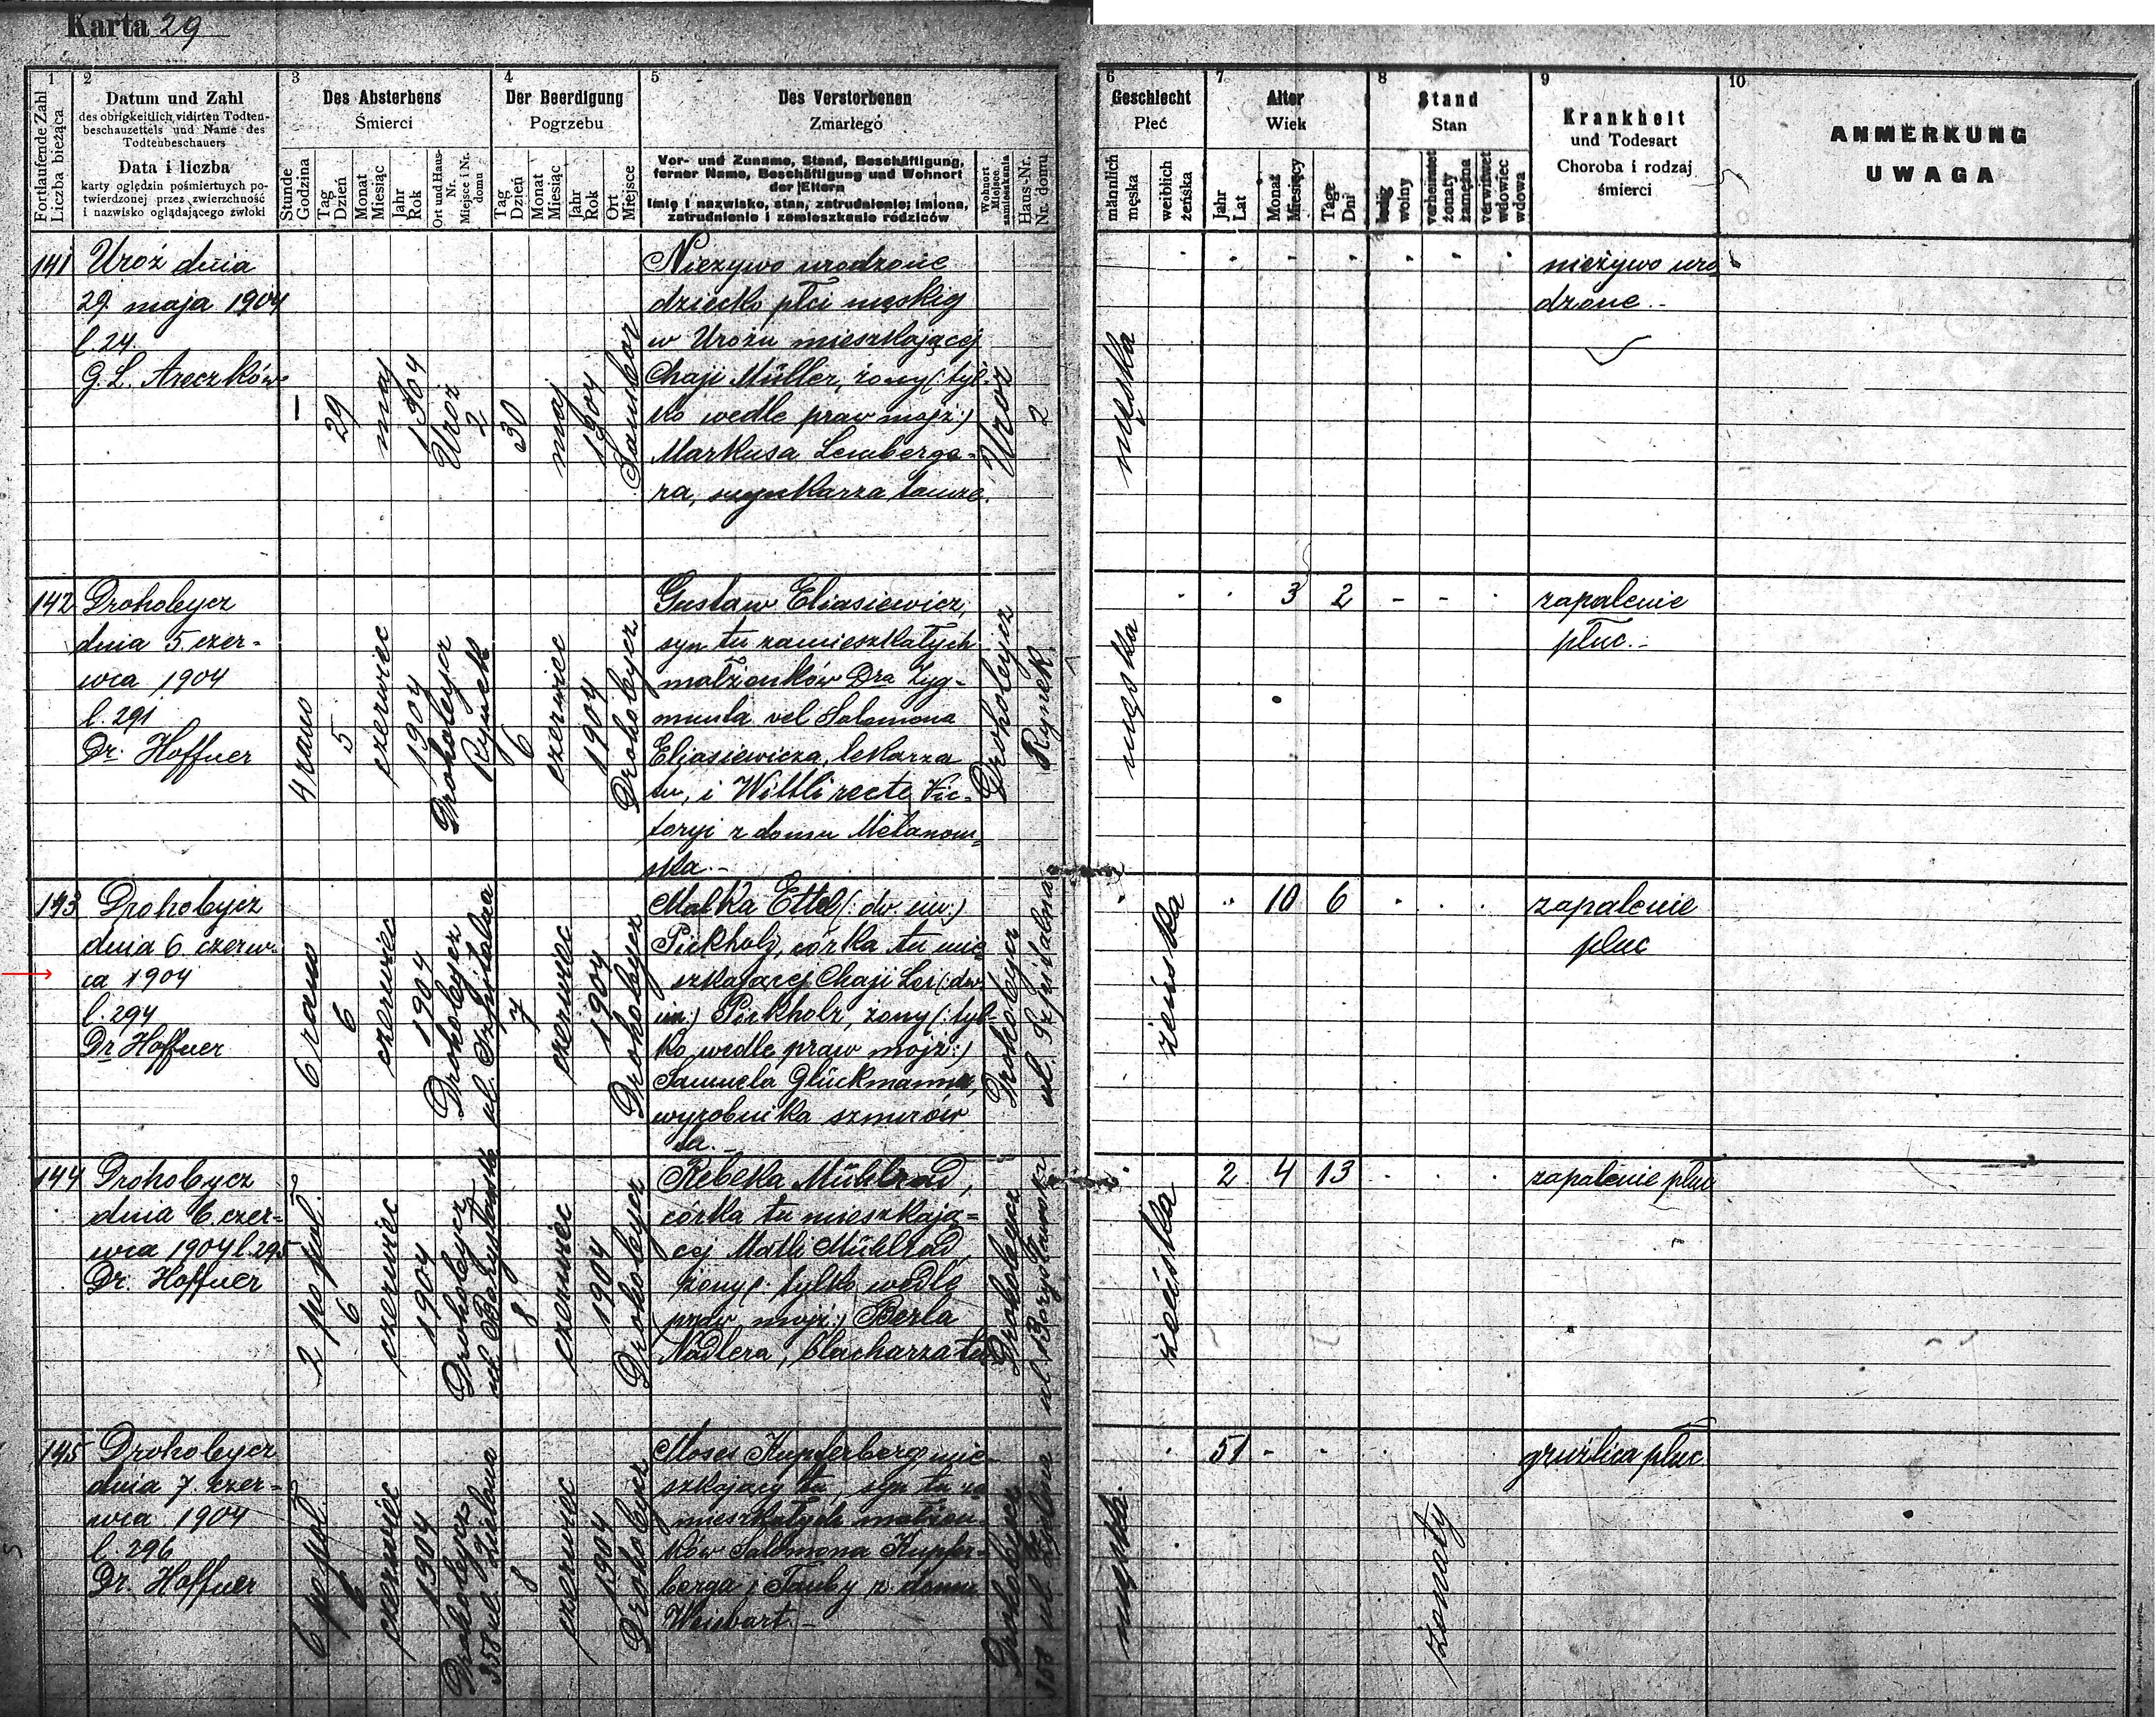 Karta 29
1
Fortlaufende Zahl
Liczba bieżąca
2
Datum und Zahl
des obrigkeitlich vidirten Todten-
beschauzettels und Name des
Todtenbeschauers
Data i liczba
karty oględzin pośmiertnych po-
twierdzonej przez zwierzchność
i nazwisko oglądającego zwłoki
3
Des Absterbens
Śmierci
Stunde
Godzina
Tag
Dzień
Monat
Miesiąc
Jahr
Rok
Ort und Haus-
Nr.
Miejsce i Nr.
domu
4
Der Beerdigung
Pogrzebu
Tag
Dzień
Monat
Miesiąc
Jahr
Rok
Ort
Miejsce
5
Des Verstorbenen
Zmarłego
Vor- und Zuname, Stand, Beschäftigung,
ferner Name, Beschäftigung und Wohnort
der Eltern
Imię i nazwisko, stan, zatrudnienie; imiona,
zatrudnienie i zamieszkanie rodziców
Wohnort
Miejsce
zamieszkania
Haus-Nr.
Nr. domu
6
Geschlecht
Płeć
männlich
męska
weiblich
żeńska
7
Alter
Wiek
Jahr
Lat
Monat
Miesięcy
Tage
Dni
8
Stand
Stan
ledig
wolny
verheiratet
żonaty
zamężna
verwitwet
wdowiec
wdowa
9
Krankheit
und Todesart
Choroba i rodzaj
śmierci
10
ANMERKUNG
UWAGA
141
Uroż dnia
29. maja 1904
l. 24.
29
maj
1904
Uroż
2
30
maj
1904
Nieżywo urodzone
dziecko płci męskiej
w Urożu mieszkającej
Chaji Müller, żony (: tyl-
ko wedle praw mojż:)
Markusa Lemberge-
ra, szynkarza tamże.
Uroż
2
męska
nieżywo uro
dzone.-
142
Drohobycz
dnia 5. czer-
wca 1904
l. 291
Dr. Hoffner
4 rano
5
czerwiec
1904
Drohobycz
Rynek
6
czerwiec
1904
Drohobycz
Gustaw Eliasiewicz,
syn tu zamieszkałych
małżonków Dra Zyg-
munta vel Salomona
Eljasiewicza, lekarza
tu, i Wittli recte Vic-
toryi z domu Mełanow-
ska.-
Drohobycz
Rynek
męska
3 2
zapalenie
płuc.-
143
Drohobycz
dnia 6. czerw-
ca 1904
l. 294
Dr Hoffner
6 rano
6
czerwiec
1904
Drohobycz
ul. Szpitalna
7
czerwiec
1904
Drohobycz
Malka Ettel (: dw. im:)
Pickholz, córka tu mie
szkającej Chaji Lei (: dw.
im:) Pickholz, żony (: tyl-
ko wedle praw mojż:)
Samuela Glückmanna,
wyrobnika szmirów
tu.-
Drohobycz
ul. Szpitalna
żeńska
10 6
zapalenie
płuc
144
Drohobycz
dnia 6. czer-
wca 1904 l. 295
Dr. Hoffner
2 po poł.
6
czerwiec
1904
Drohobycz
ul. Borysławska
8
czerwiec
1904
Drohobycz
Rebeka Mühlrad,
córka tu mieszkają-
cej Matli Mühlrad,
żony (: tylko wedle
praw mojż:) Berla
Nadlera, blacharza tu
Drohobycz
ul. Borysławska
żeńska
2 4 13
zapalenie płuc
145
Drohobycz
dnia 7. czer-
wca 1904
l. 296
Dr. Hoffner
6 po poł.
6
czerwiec
1904
Drohobycz
358 ul. Zielona
8
czerwiec
1904
Drohobycz
Moses Kupferberg mie-
szkający tu, syn tu za
mieszkałych małżon-
ków Salomona Kupfer-
berga i Tauby z domu
Weisbart.-
Drohobycz
358 ul. Zielona
męska
51
żonaty
gruźlica płuc